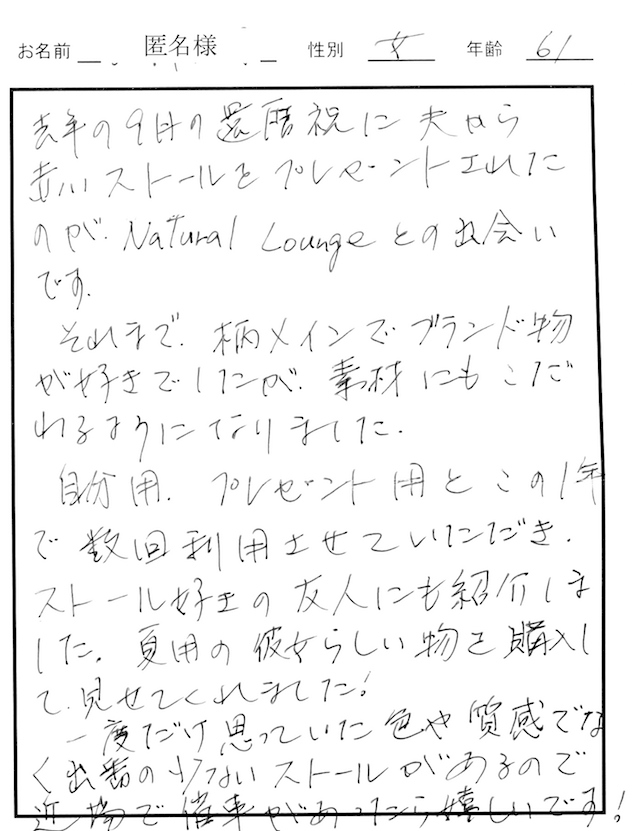 お名前 匿名様 性別 女 年齢 61
去年の9月の還暦祝に夫から
赤いストールをプレゼントされた
のが、Natural Loungeとの出会い
です。
それまで、柄メインでブランド物
が好きでしたが、素材にもこだ
われるようになりました。
自分用、プレゼント用とこの1年
で数回利用させていただき、
ストール好きの友人にも紹介しま
した。夏用の彼女らしい物を購入し
て、見せてくれました！
一度だけ思っていた色や質感でな
く出番の少ないストールがあるので
近場で催事があったら嬉しいです！